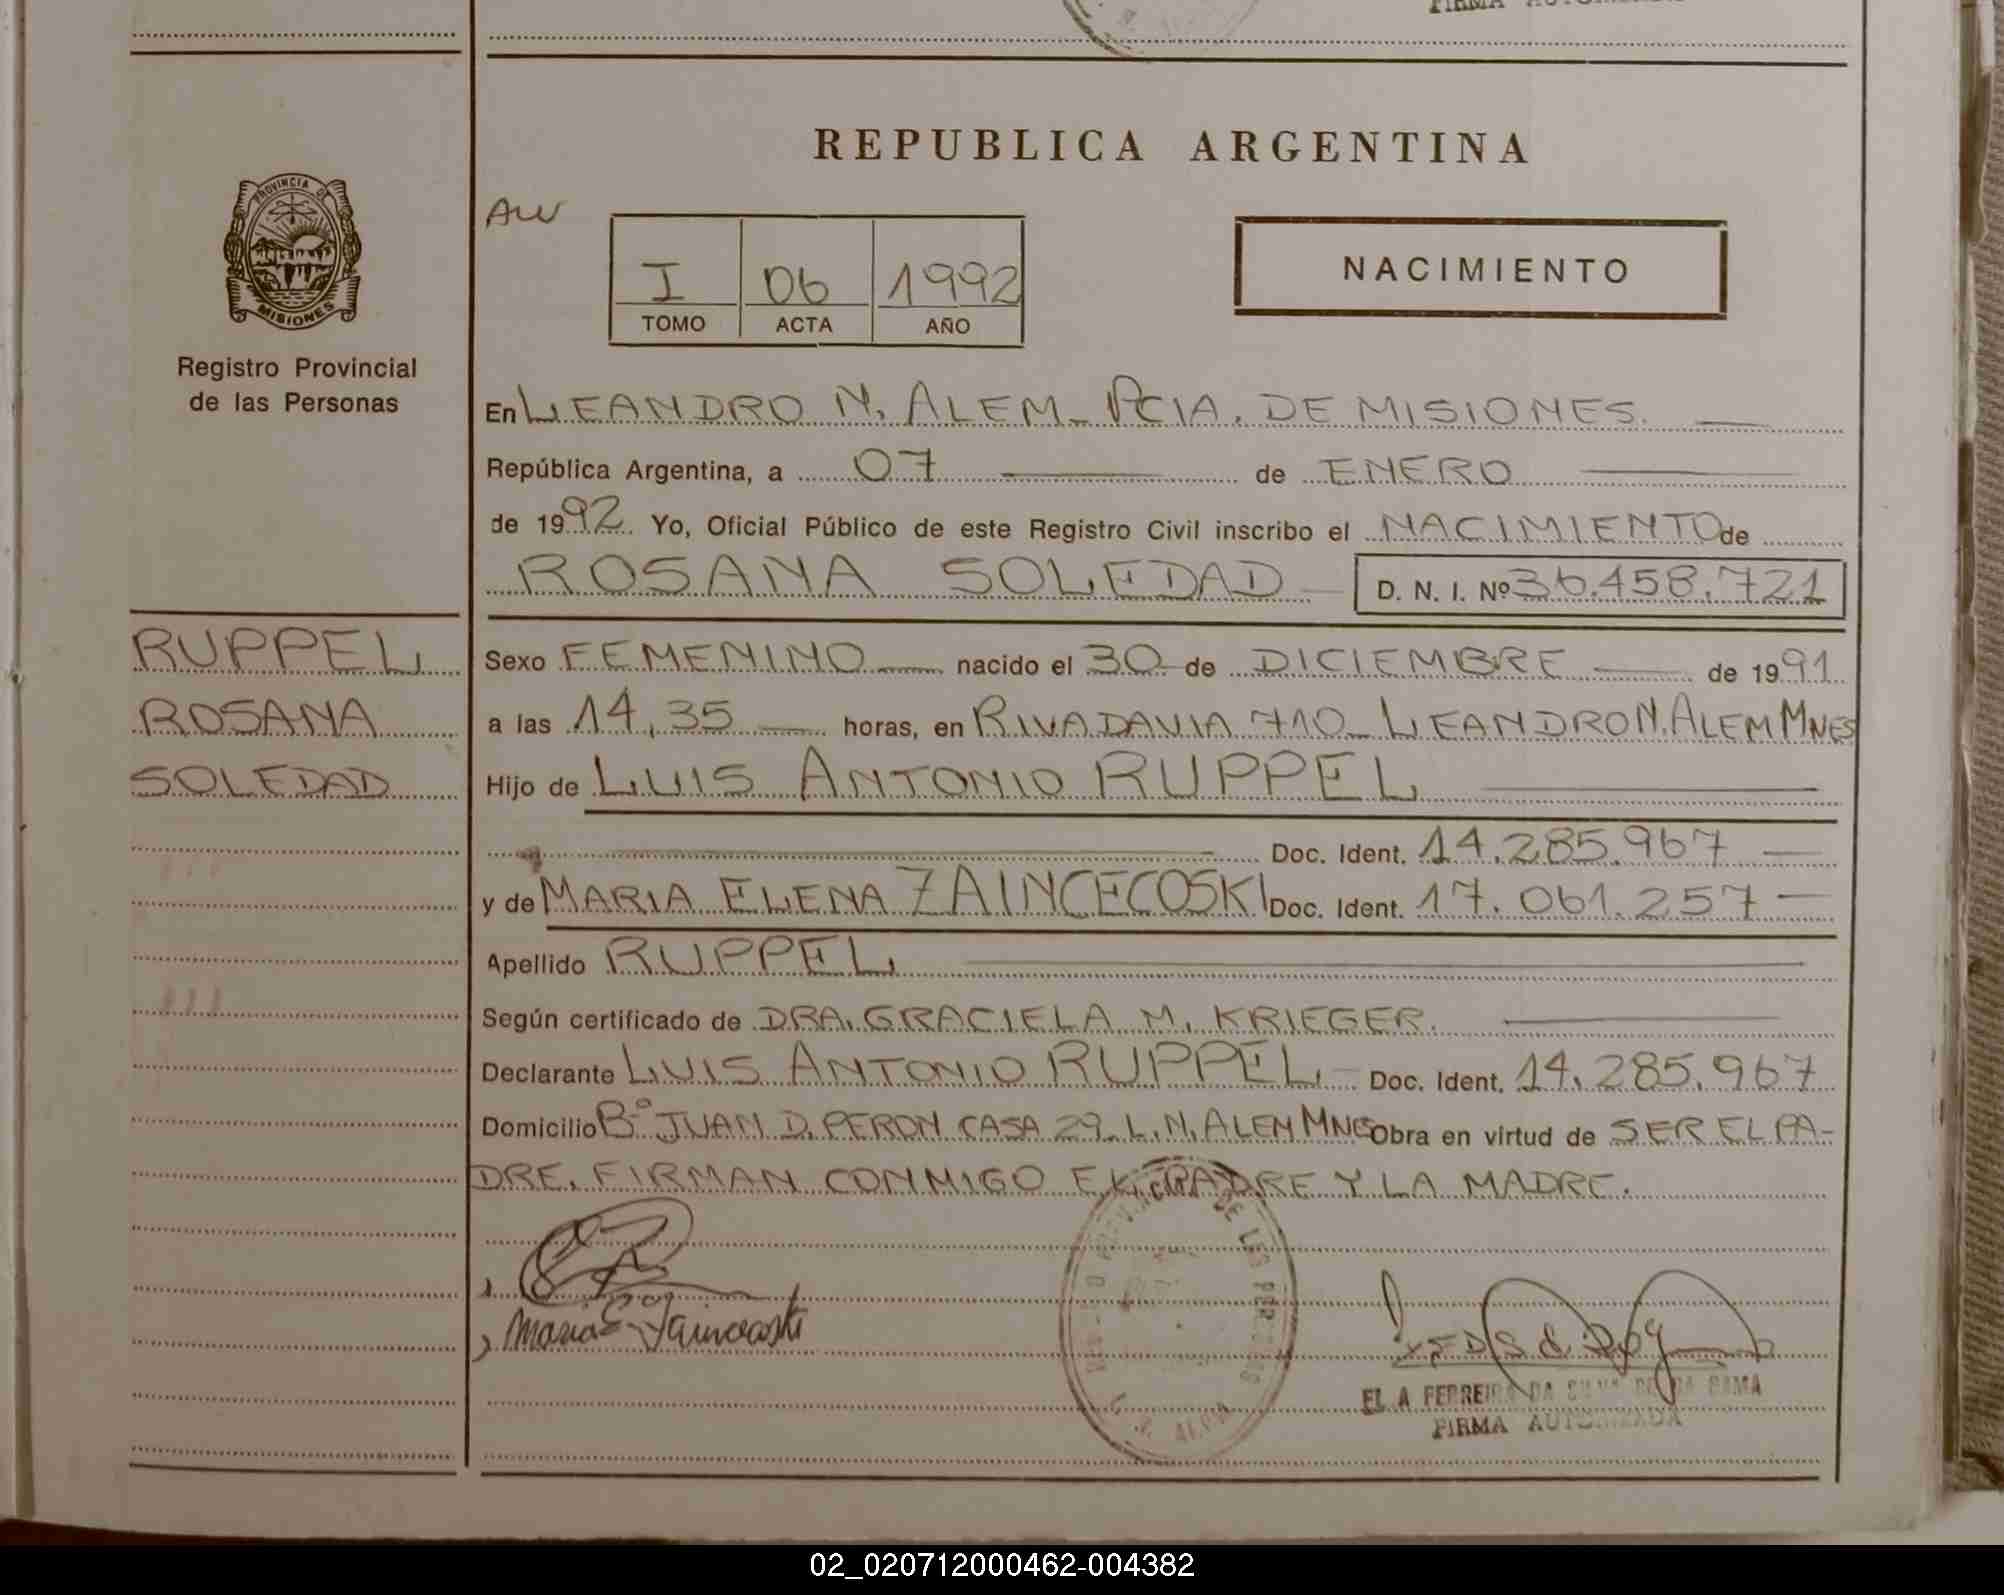 REPUBLICA ARGENTINA
PROVINCIA DE
MISIONES
Registro Provincial
de las Personas
AW
I 06 1992
TOMO ACTA AÑO
NACIMIENTO
En LEANDRO N. ALEM_ PCIA. DE MISIONES.
República Argentina, a 07 de ENERO
de 1992 Yo, Oficial Público de este Registro Civil inscribo el NACIMIENTO de
ROSANA SOLEDAD D. N. I. Nº 36.458.721
RUPPEL
ROSANA
SOLEDAD
Sexo FEMENINO nacido el 30 de DICIEMBRE de 1991
a las 14,35 horas, en RIVADAVIA 710_ LEANDRO N. ALEM MNES
Hijo de LUIS ANTONIO RUPPEL
Doc. Ident. 14.285.967
y de MARIA ELENA ZAINCECOSKI Doc. Ident. 17.061.257
Apellido RUPPEL
Según certificado de DRA. GRACIELA M. KRIEGER.
Declarante LUIS ANTONIO RUPPEL Doc. Ident. 14.285.967
Domicilio Bº JUAN D. PERON CASA 29_ L.N. ALEM MNES Obra en virtud de SER EL PA-
DRE. FIRMAN CONMIGO EL PADRE Y LA MADRE.
Maria E.
FERREIRA DA SILVA
FIRMA AUTORIZADA
02_020712000462-004382